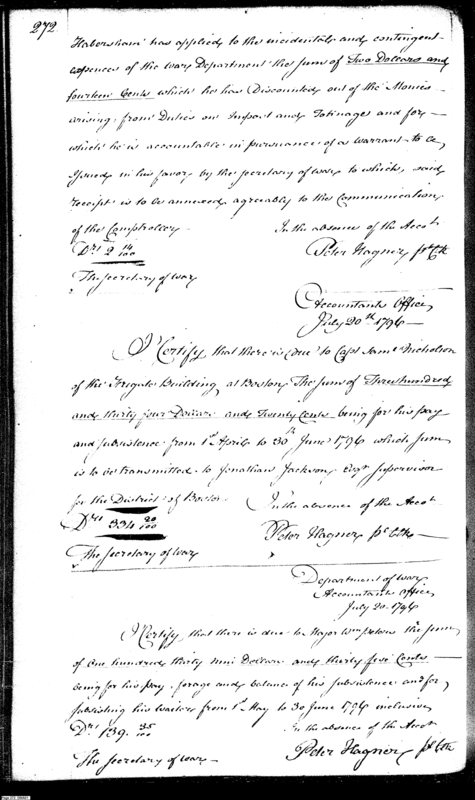 272
Habersham has applied to the incidental and contingent
expences of the War Department the sum of Two Dollars and
fourteen Cents which he has Discounted out of the Monies
arising from Duties on Import and Tonnages and for
which he is accountable in pursuance of a warrant to be
Issued in his favor by the Secretary of War to which said
receipt is to be annexed agreeably to the Communication
of the Comptroller
In the absence of the Accot
Drs 2 14/100
Peter Hagner pl Clk
The Secretary of War
Accountants Office
July 20th 1796
I Certify that there is due to Capt Saml Nicholson
of the Frigate Building at Boston The sum of Three hundred
and thirty four Dollars and Twenty Cents being for his pay
and subsistence from 1st April to 30th June 1796 which sum
is to be transmitted to Jonathan Jackson Esqr Supervisor
for the District of Boston
In the absence of the Accot
Drs 334 20/100
Peter Hagner pl Clk
The Secretary of War
Department of War
Accountants Office
July 20. 1796
I Certify that there is due to Major Wm Peters the sum
of One hundred thirty nine Dollars and thirty five Cents
being for his pay, forage and balance of his subsistence and for
subsisting his waiters from 1st May to 30 June 1796 inclusive
Drs 139. 35/100
In the absence of the Accot
The Secretary of War
Peter Hagner pl Clk